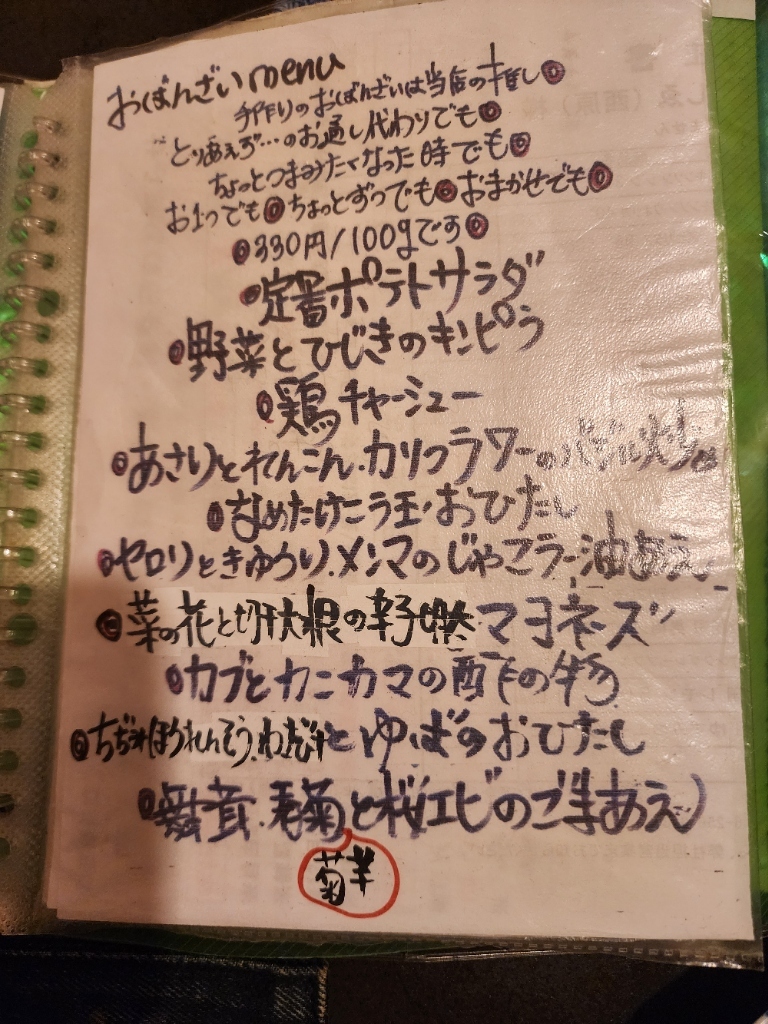 おばんざいmenu
手作りのおばんざいは当店の推し◎
"とりあえず…のお通し代わりでも◎
ちょっとつまみたくなった時でも◎
お1つでも◎ちょっとずつでも◎おまかせでも◎
◎330円/100gです◎
◎定番ポテトサラダ
◎野菜とひじきのキンピラ
◎鶏チャーシュー
◎あさりとれんこん.カリフラワーのバジル炒め
◎なめたけニラ玉.おひたし
◎セロリときゅうり.メンマのじゃこラー油あえ
◎菜の花と切干大根の辛子マヨネーズ
◎カブとカニカマの酢の物
◎ちぢみほうれんそう.わさび汁とゆばのおひたし
◎舞茸.春菊と桜エビのごまあえ
菊芋